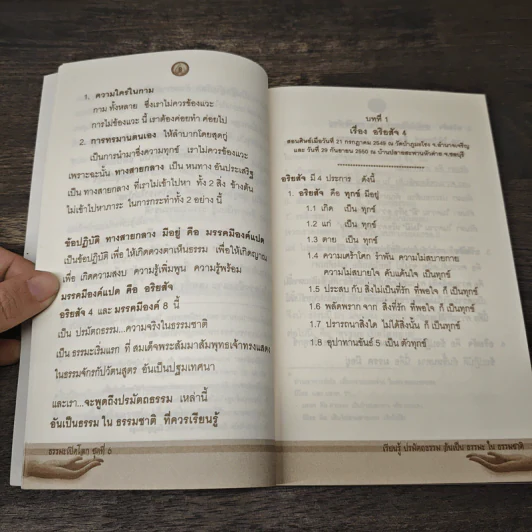 1. ความใคร่ในกาม
กาม ทั้งหลาย ซึ่งเราไม่ควรข้องแวะ
การไม่ข้องแวะ นี้ เราต้องค่อยทำ ค่อยไป
2. การทรมานตนเอง ให้ลำบากโดยสุดกู่
เป็นการนำมาซึ่งความทุกข์ เราไม่ควรข้องแวะ
เพราะฉะนั้น ทางสายกลาง เป็น หนทาง อันประเสริฐ
เป็น ทางสายกลาง ที่เราไม่เข้าไปหา ทั้ง 2 สิ่ง ข้างต้น
ไม่เข้าไปหาภาระ ในการกระทำทั้ง 2 อย่าง นี้
ข้อปฏิบัติ ทางสายกลาง มีอยู่ คือ มรรคมีองค์แปด
เป็นข้อปฏิบัติ เพื่อ ให้เกิดดวงตาเห็นธรรม เพื่อให้เกิดญาณ
เพื่อ เกิดความสงบ ความรู้เพิ่มพูน ความรู้พร้อม
มรรคมีองค์แปด คือ อริยสัจ
อริยสัจ 4 และ มรรคมีองค์ 8 นี้
เป็น ปรมัตถธรรม...ความจริงในธรรมชาติ
เป็น ธรรมะเริ่มแรก ที่ สมเด็จพระสัมมาสัมพุทธเจ้าทรงแสดง
ในธรรมจักรกัปวัตนสูตร อันเป็นปฐมเทศนา
และเรา...จะพูดถึงปรมัตถธรรม เหล่านี้
อันเป็นธรรม ใน ธรรมชาติ ที่ควรเรียนรู้
ธรรมะเปิดโลก ชุดที่ 6
บทที่ 1
เรื่อง อริยสัจ 4
สอนศิษย์เมื่อวันที่ 21 กรกฎาคม 2549 ณ วัดป่าภูมะโรง จ.อำนาจเจริญ
และ วันที่ 29 กันยายน 2550 ณ บ้านปลายสะพานหินท่าย จ.ชลบุรี
อริยสัจ มี 4 ประการ ดังนี้
1. อริยสัจ คือ ทุกข์ มีอยู่
1.1 เกิด เป็น ทุกข์
1.2 แก่ เป็น ทุกข์
1.3 ตาย เป็น ทุกข์
1.4 ความเศร้าโศก รำพัน ความไม่สบายกาย
ความไม่สบายใจ คับแค้นใจ เป็นทุกข์
1.5 ประสบ กับ สิ่งไม่เป็นที่รัก ที่พอใจ ก็ เป็นทุกข์
1.6 พลัดพราก จาก สิ่งที่รัก ที่พอใจ ก็ เป็นทุกข์
1.7 ปรารถนาสิ่งใด ไม่ได้สิ่งนั้น ก็ เป็นทุกข์
1.8 อุปาทานขันธ์ 5 เป็น ตัวทุกข์
เรียนรู้ ปรมัตถธรรม อันเป็น ธรรมะ ใน ธรรมชาติ